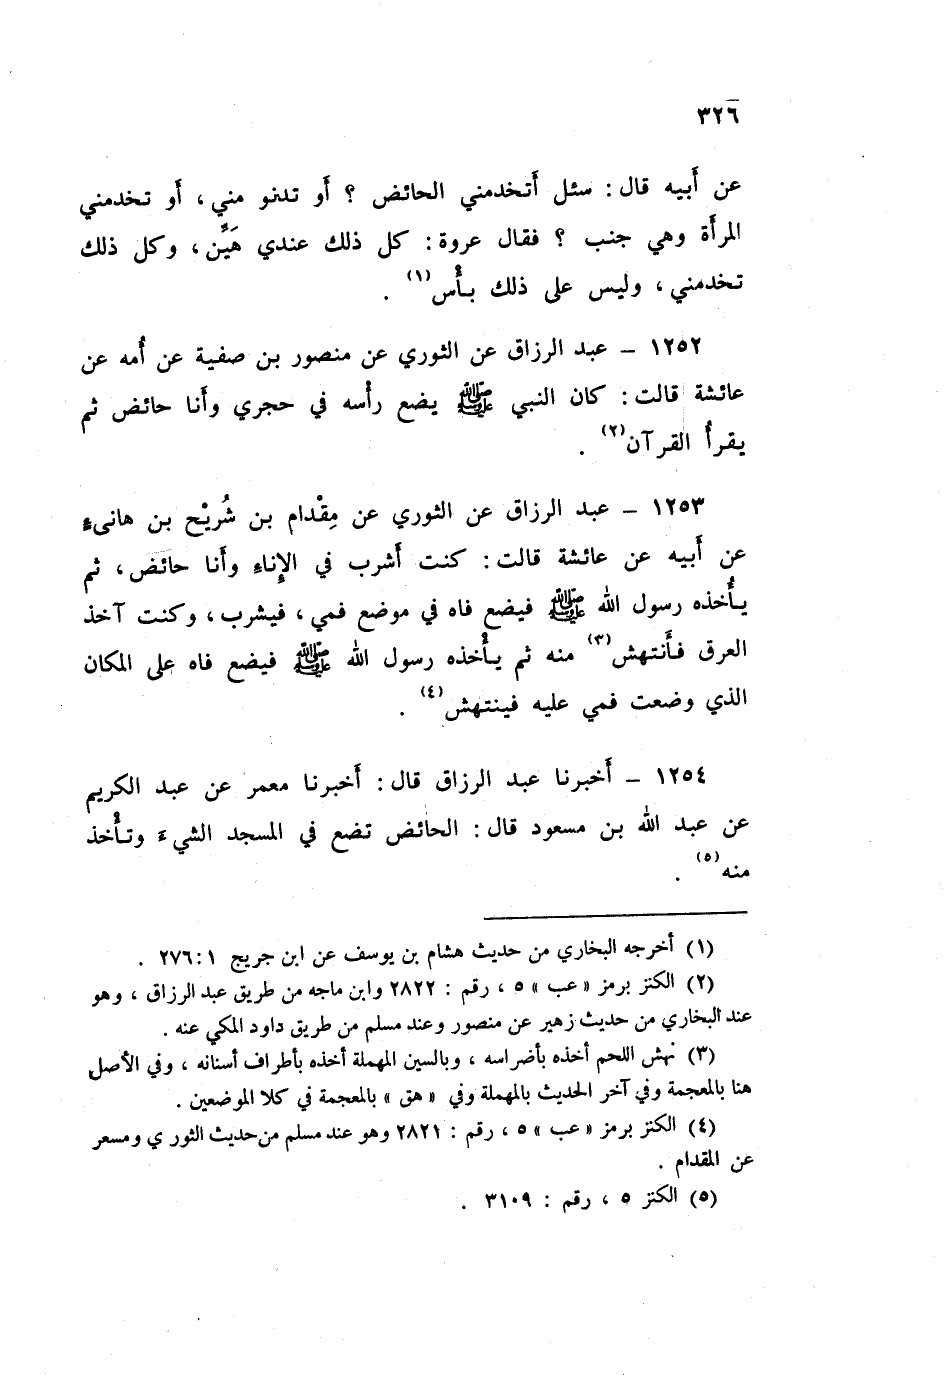 ٣٢٦
عن أَبيه قال : سئل أَتخدمني الحائض ؟ أَو تدنو مني ، أَو تخدمني
المرأَة وهي جنب ؟ فقال عروة : كل ذلك عندي هَيِّن ، وكل ذلك
تخدمني ، وليس على ذلك بأْس(١) .
١٢٥٢ – عبد الرزاق عن الثوري عن منصور بن صفية عن أُمه عن
عائشة قالت : كان النبي ﷺ يضع رأْسه في حجري وأَنا حائض ثم
يقرأُ القرآن(٢) .
١٢٥٣ – عبد الرزاق عن الثوري عن مِقْدام بن شُرَيْح بن هانىءٍ
عن أَبيه عن عائشة قالت : كنت أَشرب في الإِناءِ وأَنا حائض ، ثم
يأْخذه رسول الله ﷺ فيضع فاه في موضع فمي ، فيشرب ، وكنت آخذ
العرق فأَنتهش(٣) منه ثم يأْخذه رسول الله ﷺ فيضع فاه على المكان
الذي وضعت فمي عليه فينتهش(٤) .
١٢٥٤ – أَخبرنا عبد الرزاق قال : أَخبرنا معمر عن عبد الكريم
عن عبد الله بن مسعود قال : الحائض تضع في المسجد الشيءَ وتأْخذ
منه(٥) .
(١) أخرجه البخاري من حديث هشام بن يوسف عن ابن جريج ٢٧٦:١ .
(٢) الكنز برمز « عب » ٥ ، رقم : ٢٨٢٢ وابن ماجه من طريق عبد الرزاق ، وهو
عند البخاري من حديث زهير عن منصور وعند مسلم من طريق داود المكي عنه .
(٣) نهش اللحم أخذه بأضراسه ، وبالسين المهملة أخذه بأطراف أسنانه ، وفي الأصل
هنا بالمعجمة وفي آخر الحديث بالمهملة وفي « هق » بالمعجمة في كلا الموضعين .
(٤) الكنز برمز « عب » ٥ ، رقم : ٢٨٢١ وهو عند مسلم من حديث الثوري ومسعر
عن المقدام .
(٥) الكنز ٥ ، رقم : ٣١٠٩ .